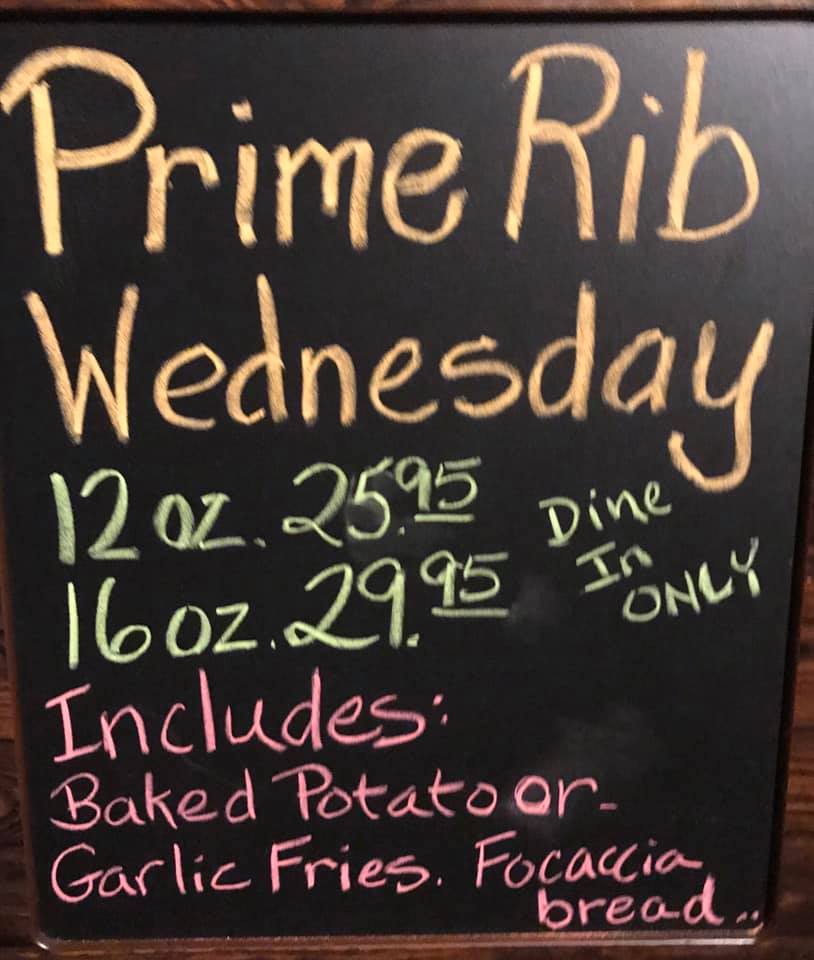 Prime Rib
Wednesday
12 oz. 25.95
16 oz. 29.95
Dine
In
ONLY
Includes:
Baked Potato or-
Garlic Fries. Focaccia
bread..